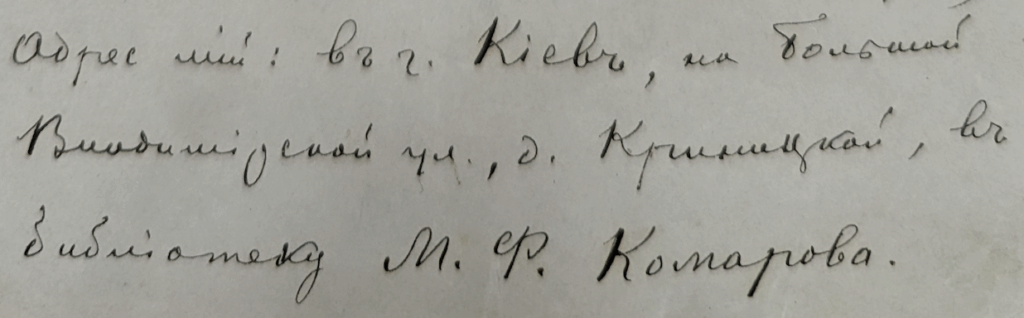 Адрес мій: въ г. Кіевъ, на Большой
Владимірской ул., д. Криницкой, въ
библіотеку М. Ф. Комарова.